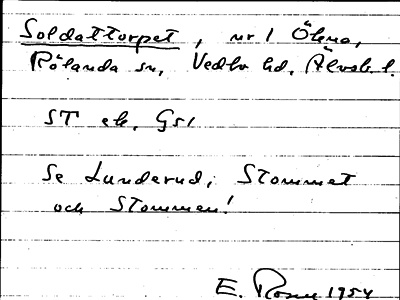 Soldattorpet, nr 1 Öhna,
Rölanda sn, Vedbo hd, Älvsb. l.
ST ek, Gsl
Se Lunderud; Stommet
och Stommen!
E. Rosen 1954